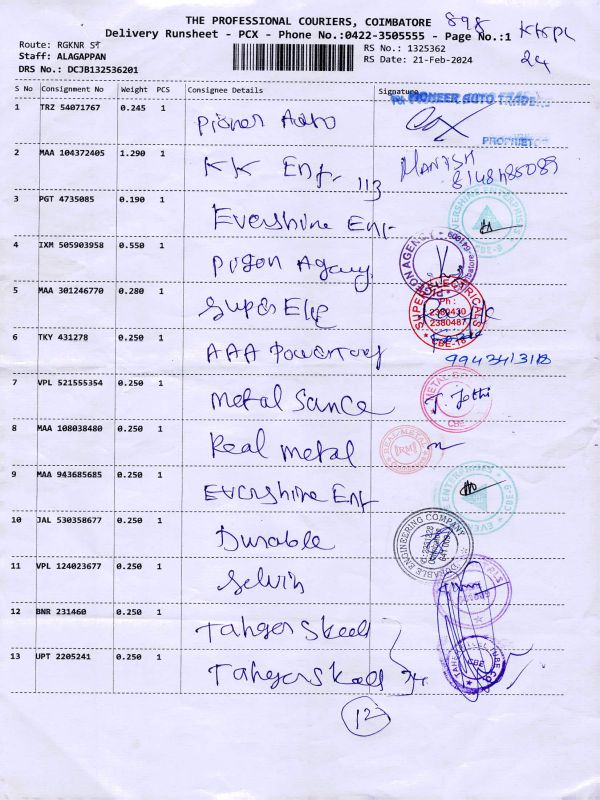 THE PROFESSIONAL COURIERS, COIMBATORE 898 KKPL
Delivery Runsheet - PCX - Phone No.:0422-3505555 - Page No.:1
Route: RGKNR ST RS No.: 1325362 24
Staff: ALAGAPPAN RS Date: 21-Feb-2024
DRS No.: DCJB132536201
S No Consignment No Weight PCS Consignee Details Signature
1 TRZ 54071767 0.245 1 Pioner Auto PIONEER AUTO TRADERS
PROPRIETOR
2 MAA 104372405 1.290 1 KK Enf 113 MANISH
8148485089
3 PGT 4735085 0.190 1 Evershine Ent
4 IXM 505903958 0.550 1 Pigon Agency
5 MAA 301246770 0.280 1 Super Ele SUPER ELECTRICALS Ph : 2380430 2380487 CBE-18
6 TKY 431278 0.250 1 AAA 9943413118
7 VPL 521555354 0.250 1 Metal Sance J. Jothi CBE
8 MAA 108038480 0.250 1 Real Metal REAL METAL RM
9 MAA 943685685 0.250 1 Evershine Ent
10 JAL 530358677 0.250 1 Durable DURABLE ENGINEERING COMPANY
11 VPL 124023677 0.250 1 Selvin
12 BNR 231460 0.250 1 Tahger Steels
13 UPT 2205241 0.250 1 Tahger Steels CBE
12